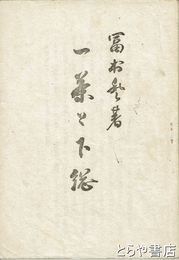 冨村登著
一茶と下總
とらや書店